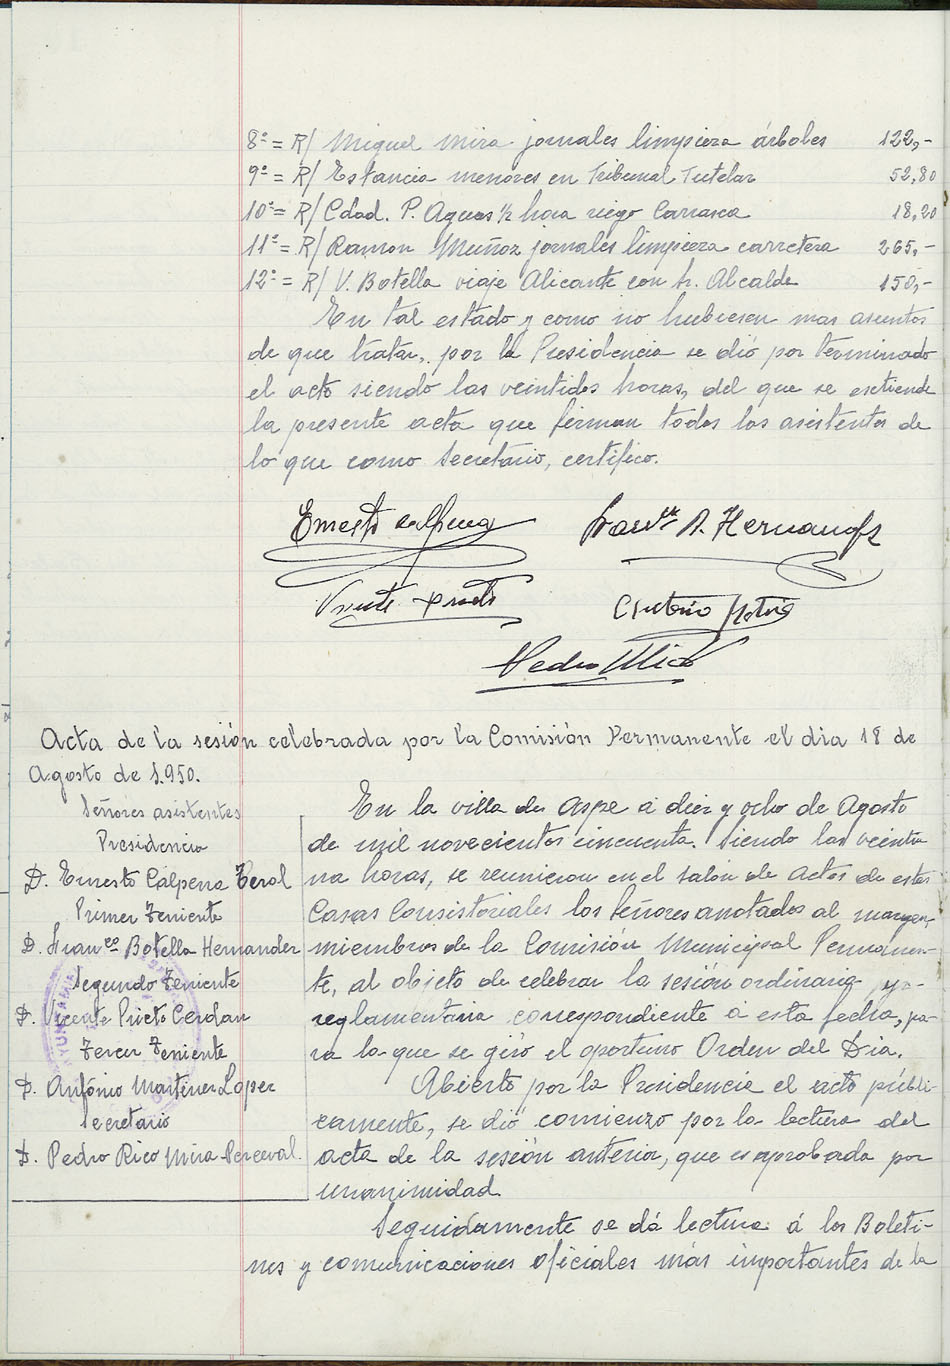 8º = R/ Miguel Mira jornales limpieza árboles 122,-
9º = R/ Estancia menores en Tribunal Tutelar 52,80
10º = R/ Cdad. P. Aguas ½ hora riego Carrasca 18,20
11º = R/ Ramon Muñoz jornales limpieza carretera 265,-
12º = R/ V. Botella viaje Alicante con Sr. Alcalde 150,-
En tal estado y como no hubiesen mas asuntos
de que tratar, por la Presidencia se dió por terminado
el acto siendo las veintidos horas, del que se extiende
la presente acta que firman todos los asistentes de
lo que como Secretario, certifico.
Ernesto Calpena
Franco B. Hernandez
Vicente Prieto
Antonio
Pedro Rico
Acta de la sesión celebrada por la Comisión Permanente el dia 18 de
Agosto de 1.950.
Señores asistentes
Presidencia
D. Ernesto Calpena Terol
Primer Teniente
D. Franco Botella Hernandez
Segundo Teniente
D. Vicente Prieto Cerdan
Tercer Teniente
D. António Martinez Lopez
Secretario
D. Pedro Rico Mira Perceval.
En la villa de Aspe a diez y ocho de Agosto
de mil novecientos cincuenta. Siendo las veintiu
na horas, se reunieron en el salón de actos de estas
Casas Consistoriales los Señores anotados al margen,
miembros de la Comisión Municipal Permanen-
te, al objeto de celebrar la sesión ordinaria y
reglamentaria correspondiente a esta fecha, pa-
ra lo que se giró el oportuno Orden del Dia.
Abierto por la Presidencia el acto públi-
camente, se dió comienzo por la lectura del
acta de la sesión anterior, que es aprobada por
unanimidad.
Seguidamente se dá lectura á los Boleti-
nes y comunicaciones oficiales más importantes de la